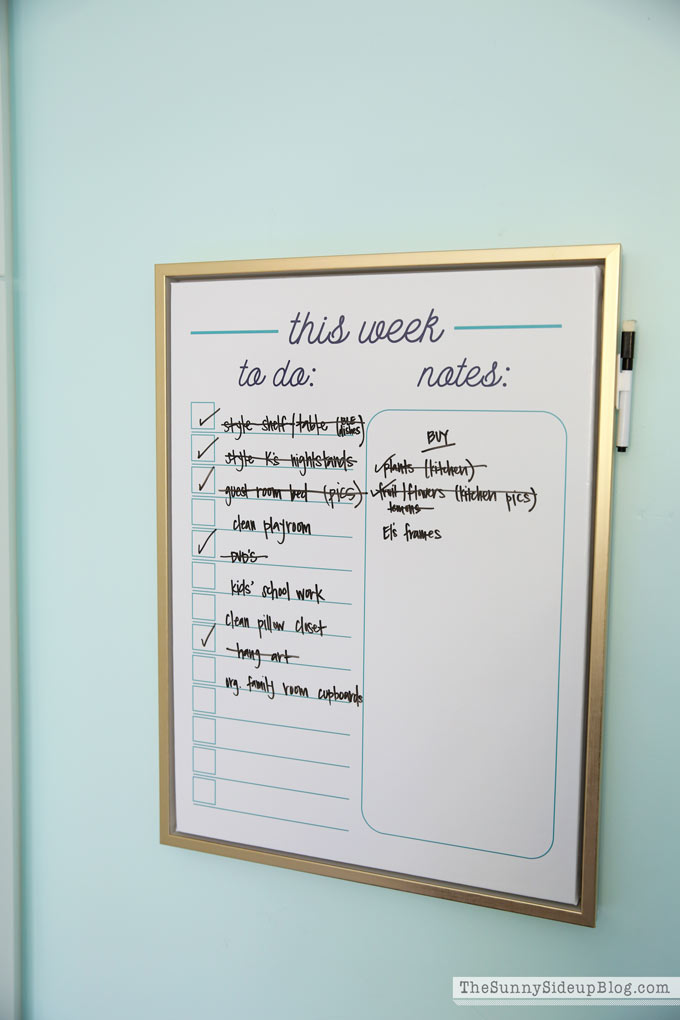 this week
to do:
notes:
style shelf/table (blue dishes)
style K's nightstands
guest room bed (pics)
clean playroom
DVD'S
kids' school work
clean pillow closet
hang art
org. family room cupboards
BUY
plants (kitchen)
fruit/flowers (kitchen pics)
lemons
El's frames
TheSunnySideupBlog.com